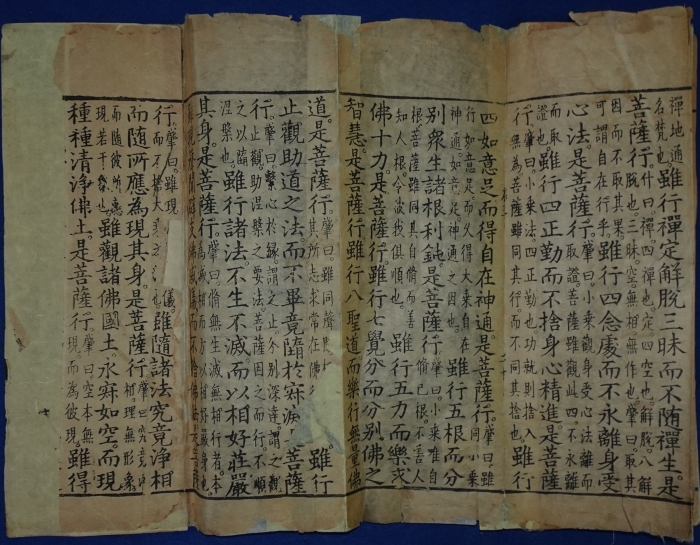 禪地通
名禪也 雖行禪定解脫三昧而不隨禪生。是
菩薩行。什曰。禪。四禪也。定。四空也。解脫。八解
脫也。三昧。空無相無作也。肇曰。取其
因而不取其果。
可謂自在行乎。雖行四念處而不永離身受
心法是菩薩行。肇曰。小乘觀身受心法離而
取證。菩薩雖觀此四。不永離
而取
證也 雖行四正勤而不捨身心精進是菩薩
行。肇曰。小乘法四正勤也功就則捨入
無為。菩薩雖同其行。而不同其捨也。雖行
四如意足而得自在神通。是菩薩行。肇曰雖
同小乘
行如意足而久得大乘自在
神通。如意足神通之因也。雖行五根而分
別眾生諸根利鈍。是菩薩行。肇曰。小乘唯自
修己根。不善人
根菩薩雖同其自修而善
知人根。令彼我俱順也。雖行五力而樂求
佛十力。是菩薩行雖行七覺分而分別佛之
智慧是菩薩行雖行八聖道而樂行無量佛
道。是菩薩行。肇曰。雖同聲
其所志求常在佛 雖行
止觀助道之法。而不畢竟墮於寂滅 菩薩
行。肇曰。繫心於緣。謂之止。分別深達。謂之觀
止觀助涅槃之要法菩薩因之而行。不順
之以墮
涅槃也。雖行諸法。不生不滅。而以相好莊嚴
其身。是菩薩行。肇曰。修無生滅無相行者。本
為滅相而方以相好嚴身也
行。肇曰。雖現
而不捨大 儀。雖隨諸法究竟淨相
而隨所應為現其身。是菩薩行。肇曰究竟
相理無形象
而隨彼所應
現若干象也。雖觀諸佛國土。永寂如空。而現
種種清淨佛土。是菩薩行。肇曰空本無
現而為彼現。雖得